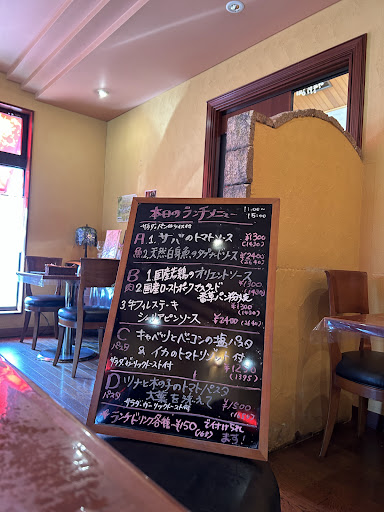 本日のランチメニュー 11:00〜15:00
サラダ・パン or ライス付
A 1. サバのトマトソース ¥1300 (1430)
魚 2. 天然白身魚の ソース ¥2400 (2640)
B 1. 国産若鶏のオリエントソース ¥1300 (1430)
肉 2. 国産ローストポークマスタード
香草パン粉焼 ¥1300
3. 牛フィレステーキ
シャリアピンソース ¥2400 (2640)
C キャベツとベーコンの塩パスタ
パスタ & イカのトマトリゾット付
サラダ・ガーリックトースト付 (1395)
D ツナと木の子のトマトパスタ
パスタ 大葉を添えて ¥1500
サラダ・ガーリックトースト付 (1650)
ランチドリンク各種 ¥150 (165) でお付けられます！